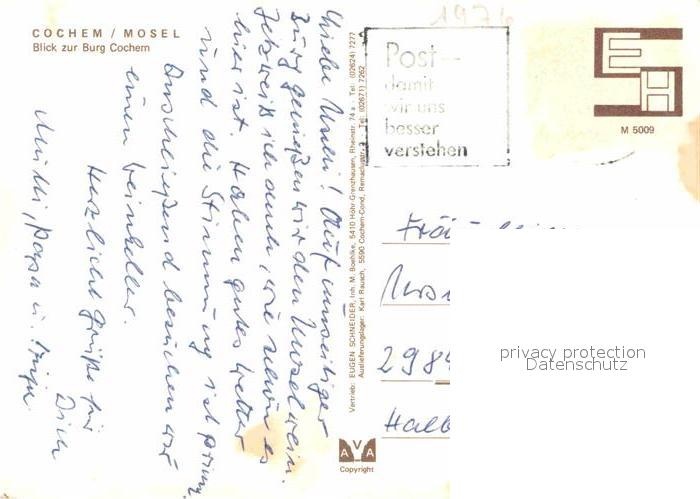 COCHEM / MOSEL
Blick zur Burg Cochem
1976
Post—
damit
wir uns
besser
verstehen
M 5009
Liebe Ursel! Auf
Burg genießen wir den Moselwein.
Jetzt weiß ich auch, wie schön es
hier ist. Haben gutes Wetter
und die Stimmung ist prima.
Anschließend besuchen wir
einen Weinkeller.
Herzliche Grüße für
Dich
Mutti, Papa u.
Vertrieb: EUGEN SCHNEIDER, Inh. M. Boehlke, 5410 Höhr-Grenzhausen, Rheinstr. 74 a · Tel. (02624) 7277
Auslieferungslager: Karl Rausch, 5590 Cochem-Cond, Tel. (02671) 7262
AVA
Copyright
298
Halb
privacy protection
Datenschutz